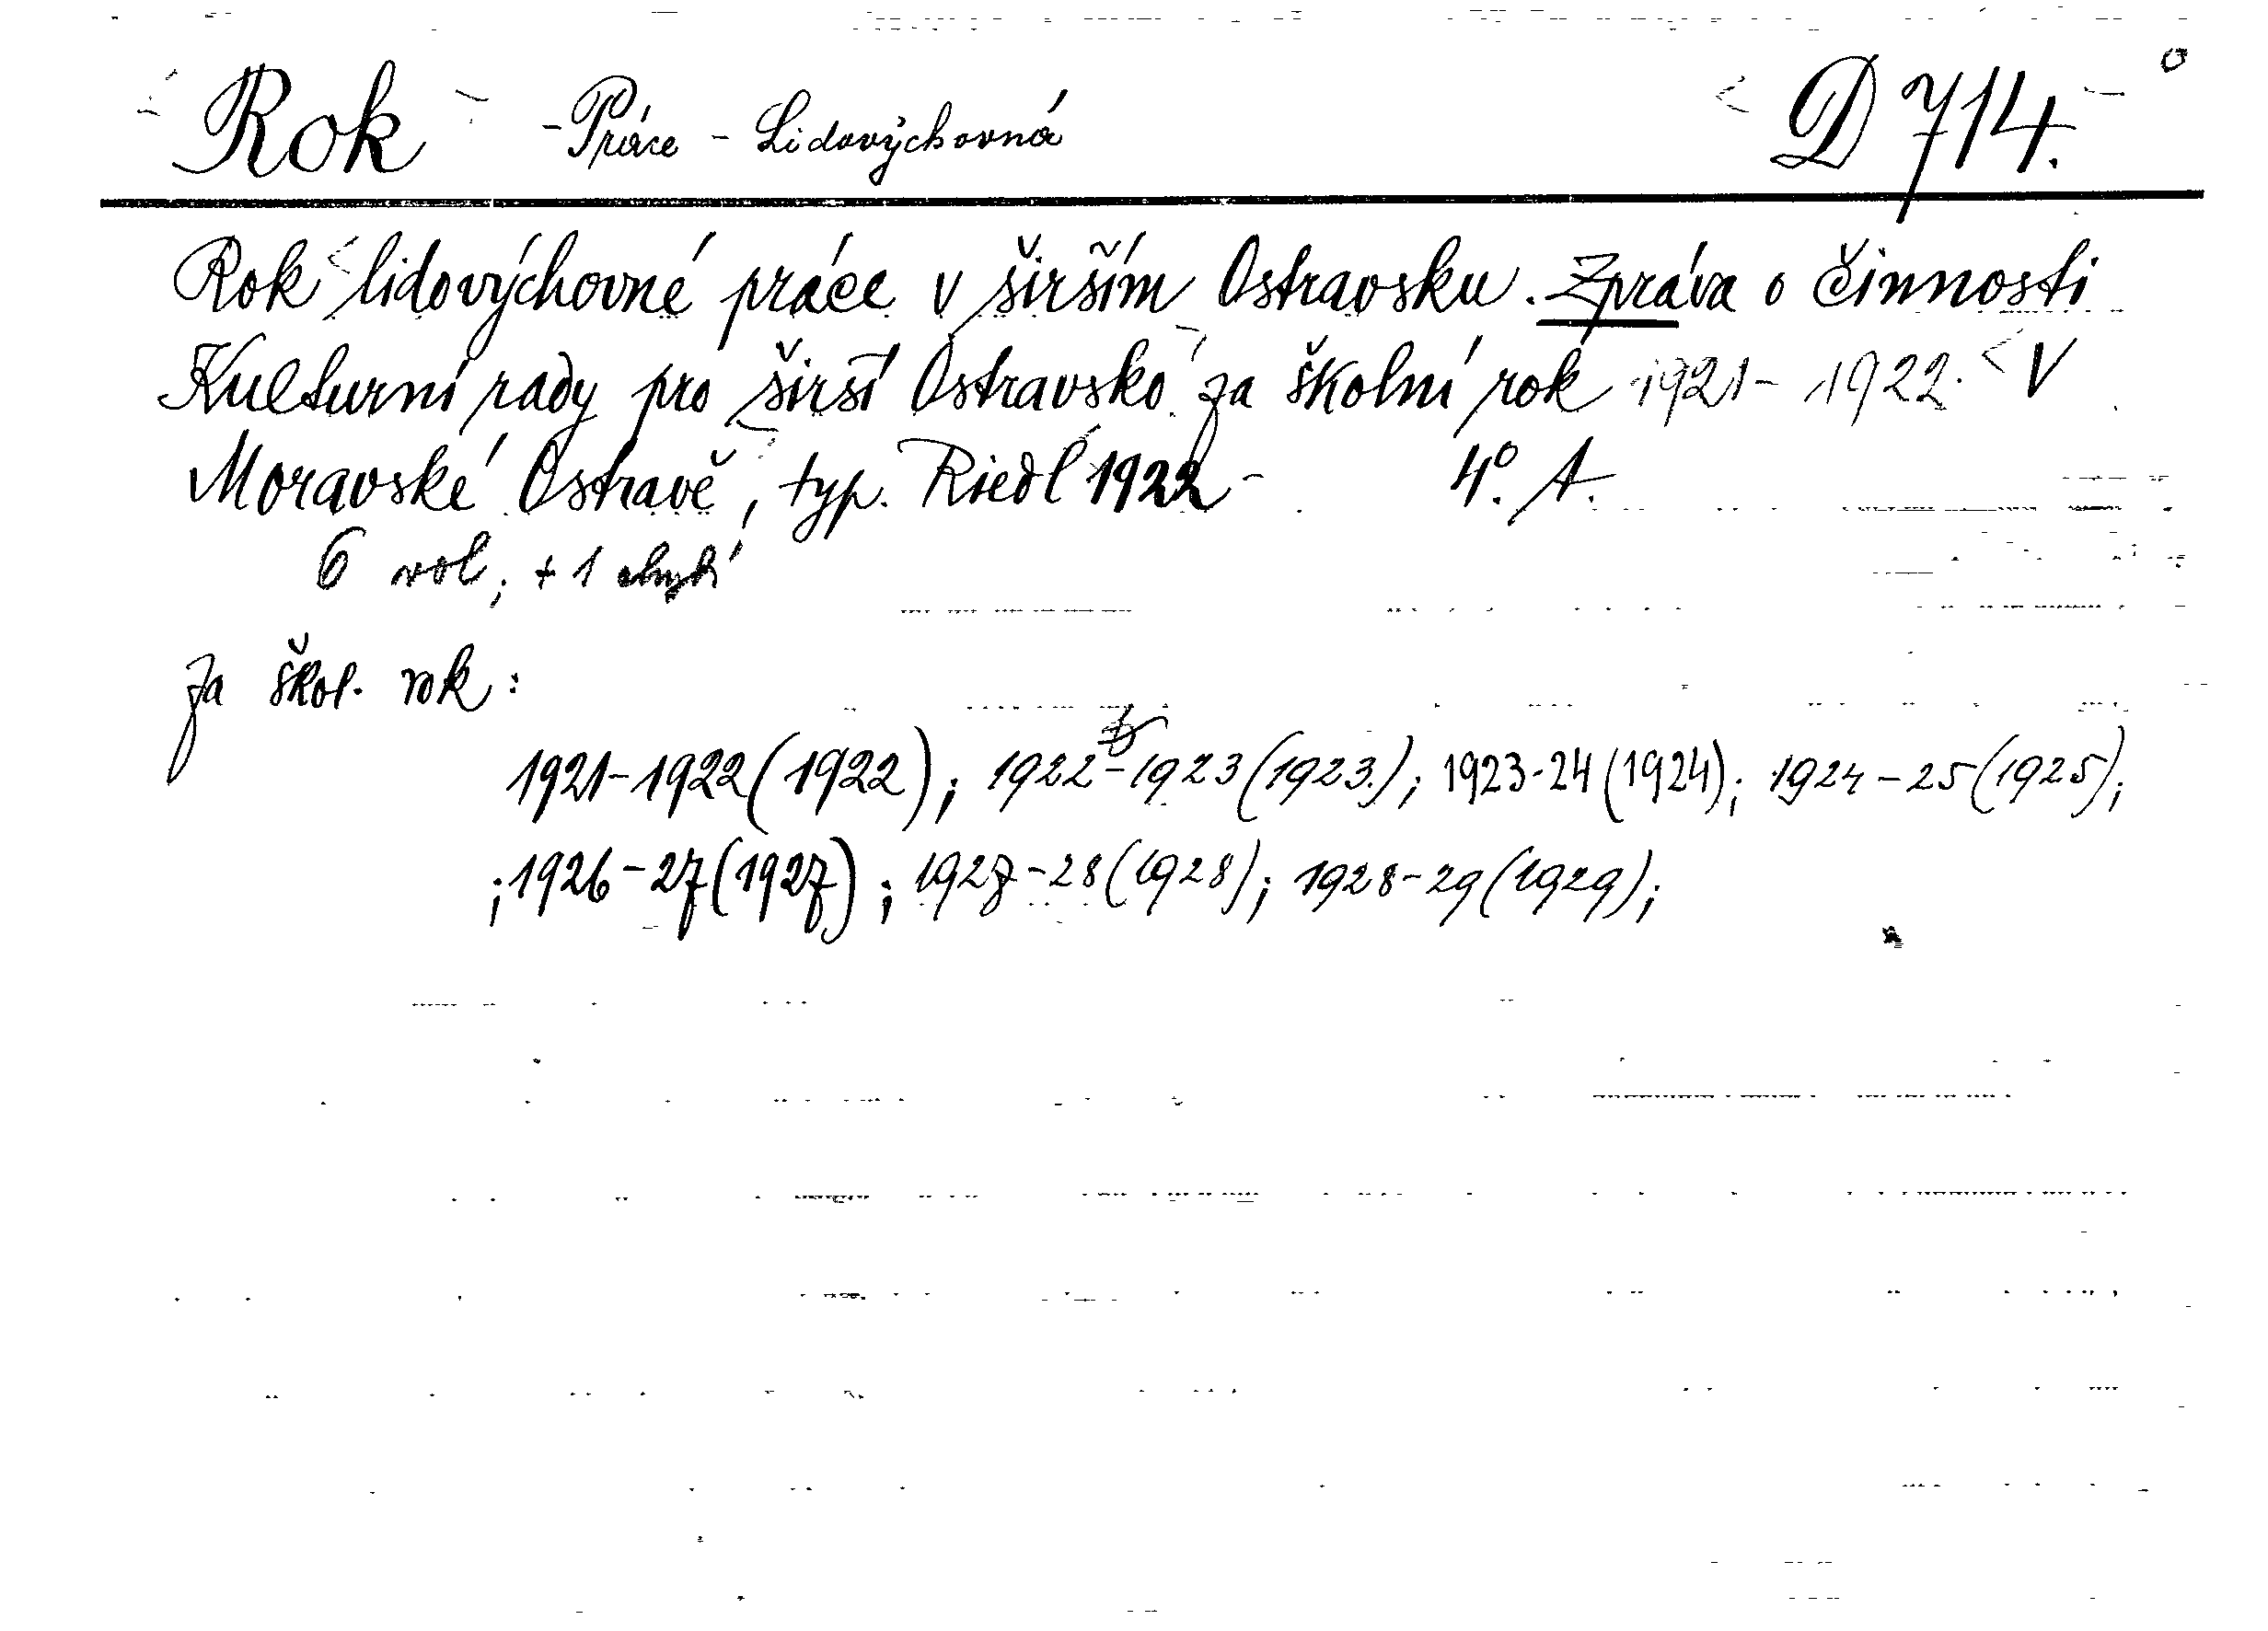 Rok - Práce - Lidovýchovná D 714.
Rok lidovýchovné práce v širším Ostravsku. Zpráva o činnosti
Kulturní rady pro širší Ostravsko za školní rok 1921 - 1922. V
Moravské Ostravě, typ. Riedl 1922 - 4°. A.
6 vol. ; + 1 chybí
Za škol. rok :
1921-1922 (1922) ; 1922-1923 (1923.) ; 1923-24 (1924) ; 1924-25 (1925) ;
; 1926-27 (1927) ; 1927-28 (1928) ; 1928-29 (1929) ;